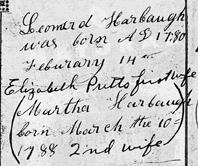 Leomerd Harbaugh
was born AD 1780
Feburary 14
Elizabeth Prutts first wife
(Martha Harbaugh
born March the 10
1788 2nd wife)